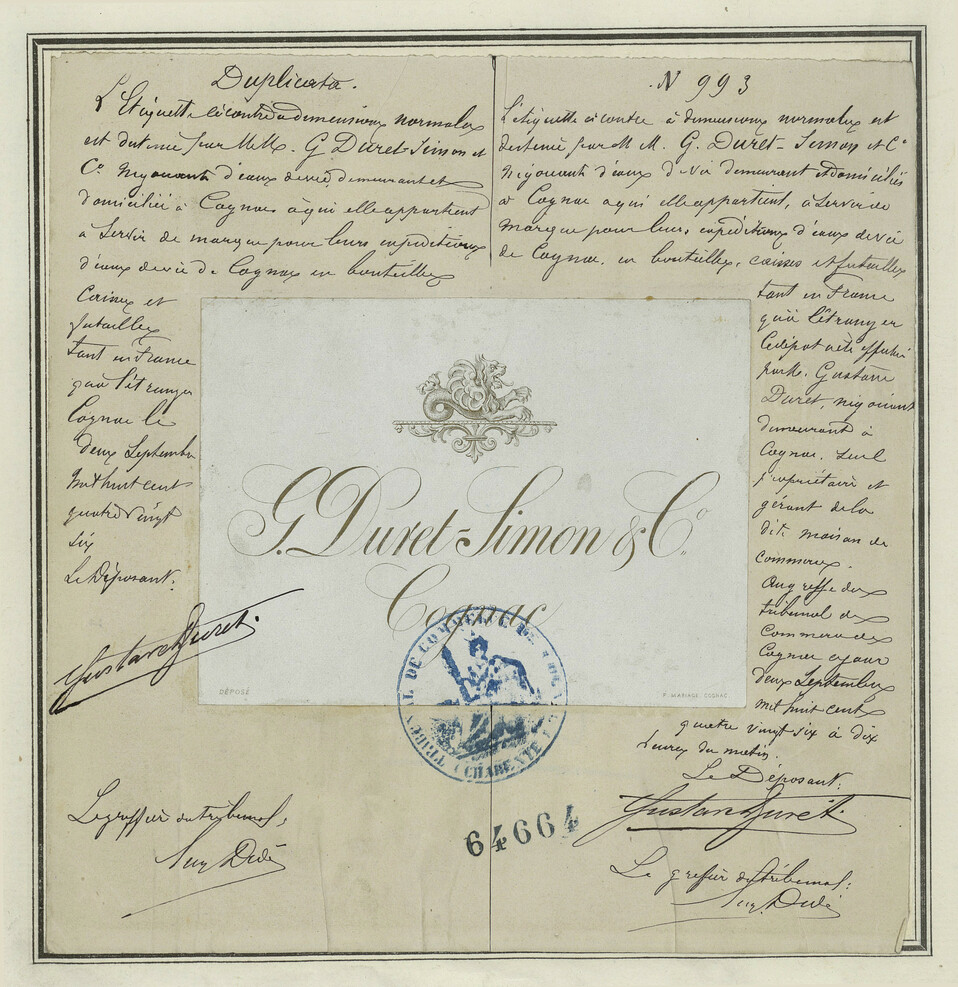 Duplicata.
L'Etiquette ci contre à dimensions normales
est destinée par M.M. G. Duret-Simon et
Co. Négociants d'eaux de vie, demeurant et
domiciliés à Cognac à qui elle appartient
à servir de marque pour leurs expéditions
d'eaux de vie de Cognac en bouteilles
Caisses et
futailles
tant en France
qu'à l'étranger
Cognac le
deux Septembre
mil huit cent
quatre vingt
six
Le Déposant.
Gustave Duret.
Le greffier du tribunal,
N 993
L'étiquette ci contre à dimensions normales est
destinée par M M. G. Duret-Simon et Co
Négociants d'eaux de vie demeurant et domiciliés
à Cognac à qui elle appartient, à servir de
marque pour leurs expéditions d'eaux de vie
de Cognac, en bouteilles, caisses et futailles
tant en France
qu'à l'étranger
Le dépôt a été effectué
par M. Gustave
Duret, négociant
demeurant à
Cognac, seul
propriétaire et
gérant de la
dite maison de
commerce.
Au greffe du
tribunal de
Commerce de
Cognac ce jour
deux Septembre
mil huit cent
quatre vingt six à dix
heures du matin
Le Déposant.
Gustave Duret.
Le greffier du tribunal:
G. Duret-Simon & Co.
Cognac
DÉPOSÉ
F. MARIAGE, COGNAC
TRIBUNAL DE COMMERCE DE COGNAC
(CHARENTE)
64664